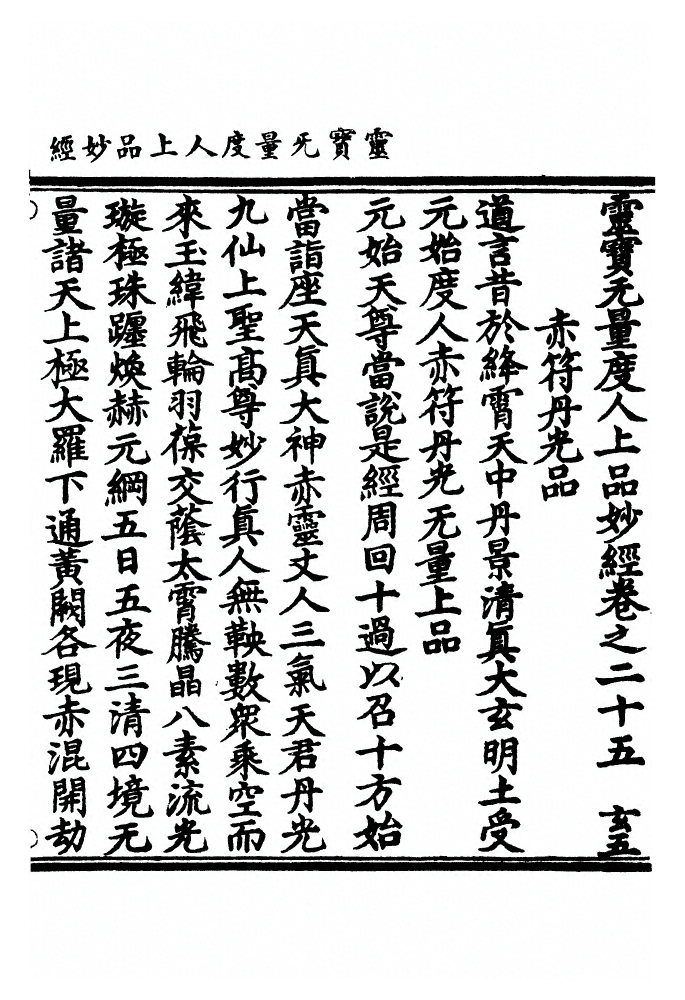 靈寳旡量度人上品妙經
靈寳无量度人上品妙經卷之二十五 玄五
赤符丹光品
道言昔於絳霄天中丹景清眞大玄明土受
元始度人赤符丹光无量上品
元始天尊當說是經周回十過以召十方始
當詣座天眞大神赤靈丈人三氣天君丹光
九仙上聖高尊妙行眞人無鞅數衆乘空而
來玉緯飛輪羽葆交蔭太霄騰晶八素流光
璇極珠躔煥赫元綱五日五夜三清四境无
量諸天上極大羅下通黃闕各現赤混開劫